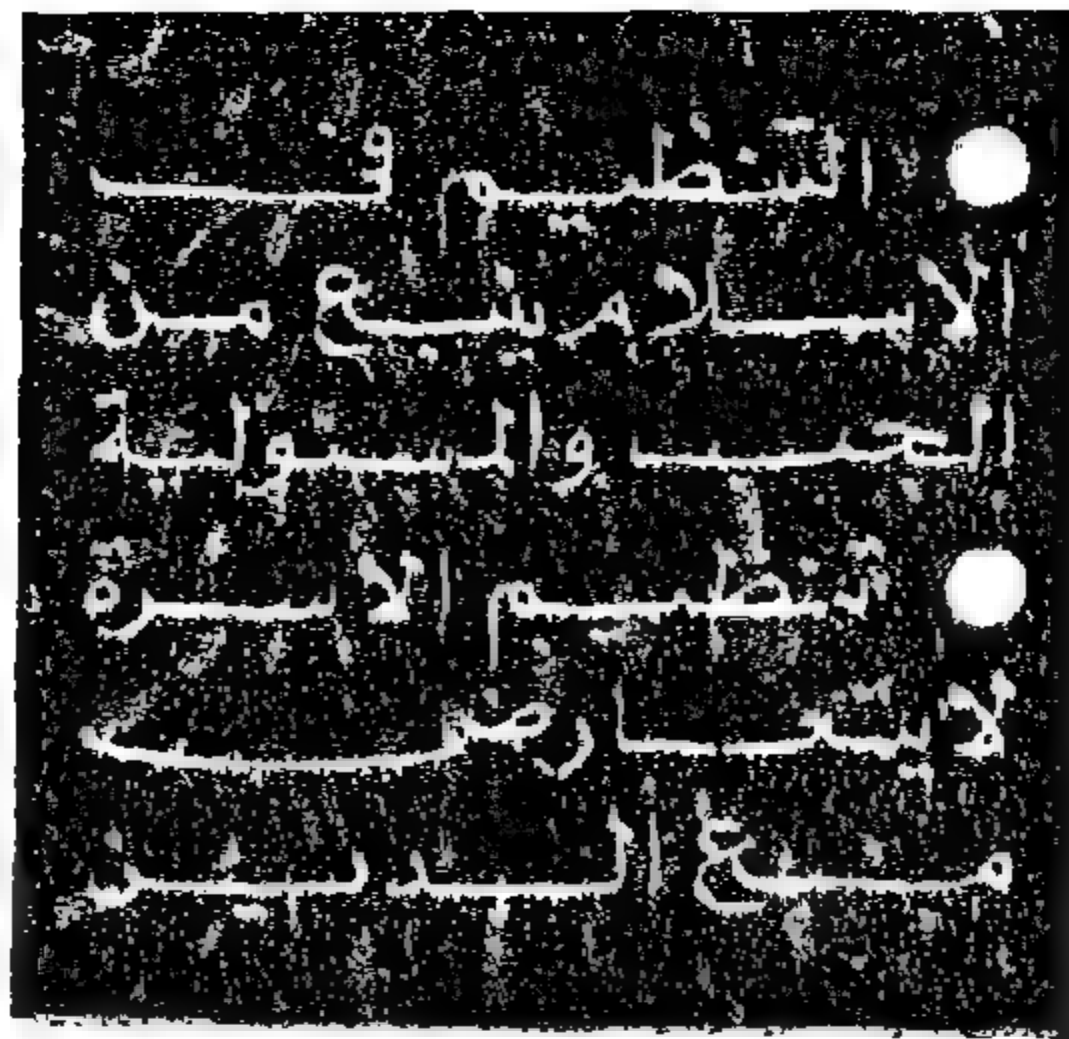 ● التنظيم في
الاسلام ينبع من
الحب والمسئولية
● تنظيم الاسرة
لا يتعارض
مع الدين